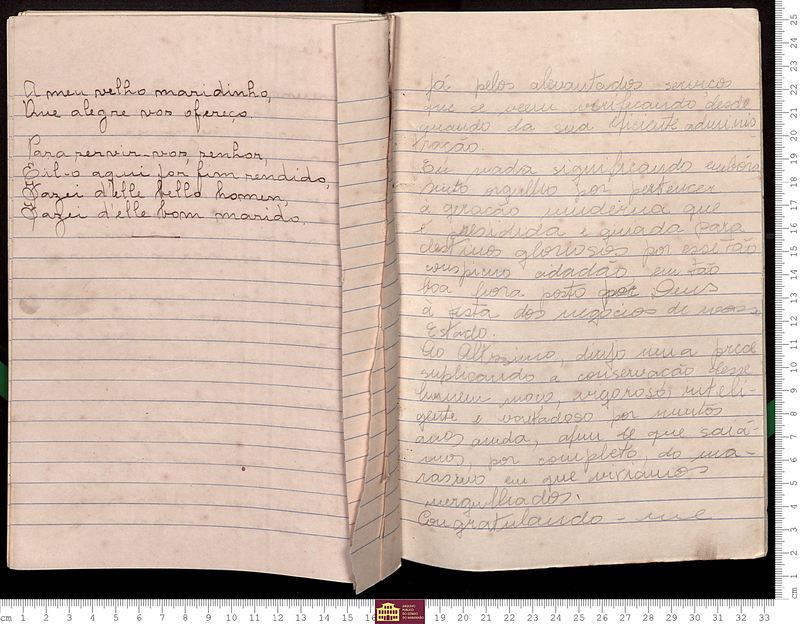 A meu velho maridinho,
Que alegre vos ofereço.
Para servir-vos, senhor,
Eil-o aqui por fim rendido,
Fazei d'elle bello homem,
Fazei d'elle bom marido.
já pelos alevantados serviços
que se veem verificando desde
quando da sua eficiente adminis
tração.
Eu nada significando embóra
sinto orgulho por pertencer
a geração modérna que
é presidida e guiada para
destinos gloriosos por esse tão
conspicuo cidadão em tão
boa hora posto por Deus
à testa dos negocios de nosso
Estado.
Ao Altissimo, dirijo uma préce
suplicando a conservação desse
homem moço, vigoroso, inteli-
gente e vontadoso por muitos
anos ainda, afim de que saia-
mos, por completo, do ma-
rasmo em que viviamos
mergulhados.
Congratulando-me
cm 1 2 3 4 5 6 7 8 9 10 11 12 13 14 15 16 19 20 21 22 23 24 25 26 27 28 29 30 31 32 33
cm 1 2 3 4 5 6 7 8 9 10 11 12 13 14 15 16 17 18 19 20 21 22 23 24 25
ARQUIVO
PÚBLICO
DO ESTADO
DO MARANHÃO